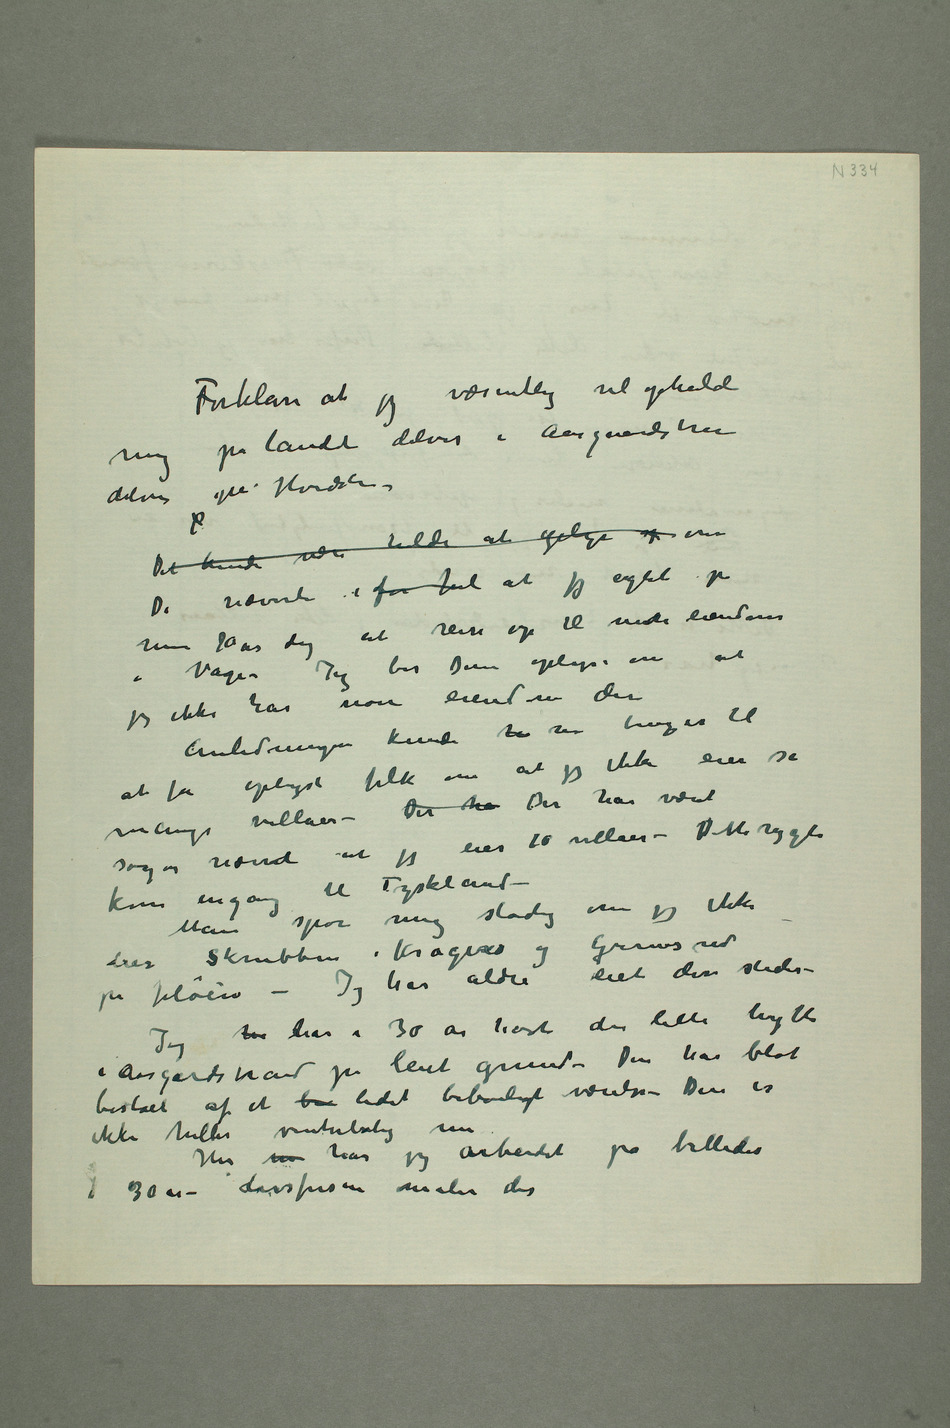 N 334
Forklare at jeg væsentlig vil opholde
mig på landet delvis i Aasgaardstran
delvis på Hvidsten
Det kunde være heldi at oplyse op om
De nævnte i for fiel at jeg agtet på
min 70års dag at reise op til mine eiendom
i Våge. Jeg ber Dem oplyse om at
jeg ikke har noen eiendom der
Anledningen kunde ha nu bruges til
at få oplyst folk om at jeg ikke eier så
mange villaer – Der ha Der har været
sogar nævnt at jeg eier 10 villaer – Dette rygte
kom engang til Tyskland –
Man spør mig stadig om jeg ikke
eier Skrubben i Kragerø og Grimsrød
på Jeløen – Jeg har aldri eiet disse steder –
Jeg ha har i 30 år havt den lille hytte
i Aasgårdstrand på leiet grund – Den har blot
bestået af et be lidet beboeligt værelse – Den er
ikke heller vinterbolig nu
Her ha har jeg arbeidet på billeder
i 30 år – Livsfrisen maler der